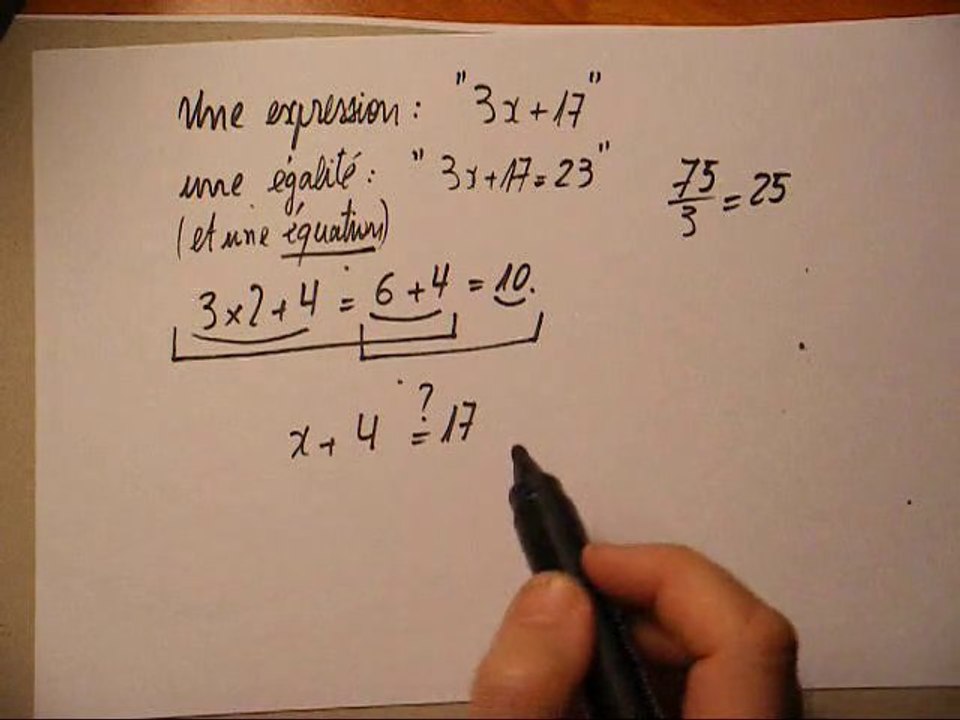 Une expression : "3x+17"
une égalité : "3x+17=23"
(et une équation)
75/3 = 25
3×2+4 = 6+4 = 10.
x+4 ?= 17